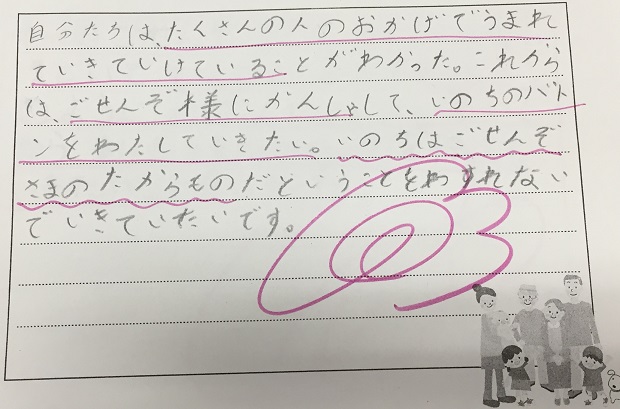 自分たちは、たくさんの人のおかげでうまれ
ていきていけていることがわかった。これから
は、ごせんぞ様にかんしゃして、いのちのバト
ンをわたしていきたい。いのちはごせんぞ
さまのたからものだということをわすれない
でいきていたいです。